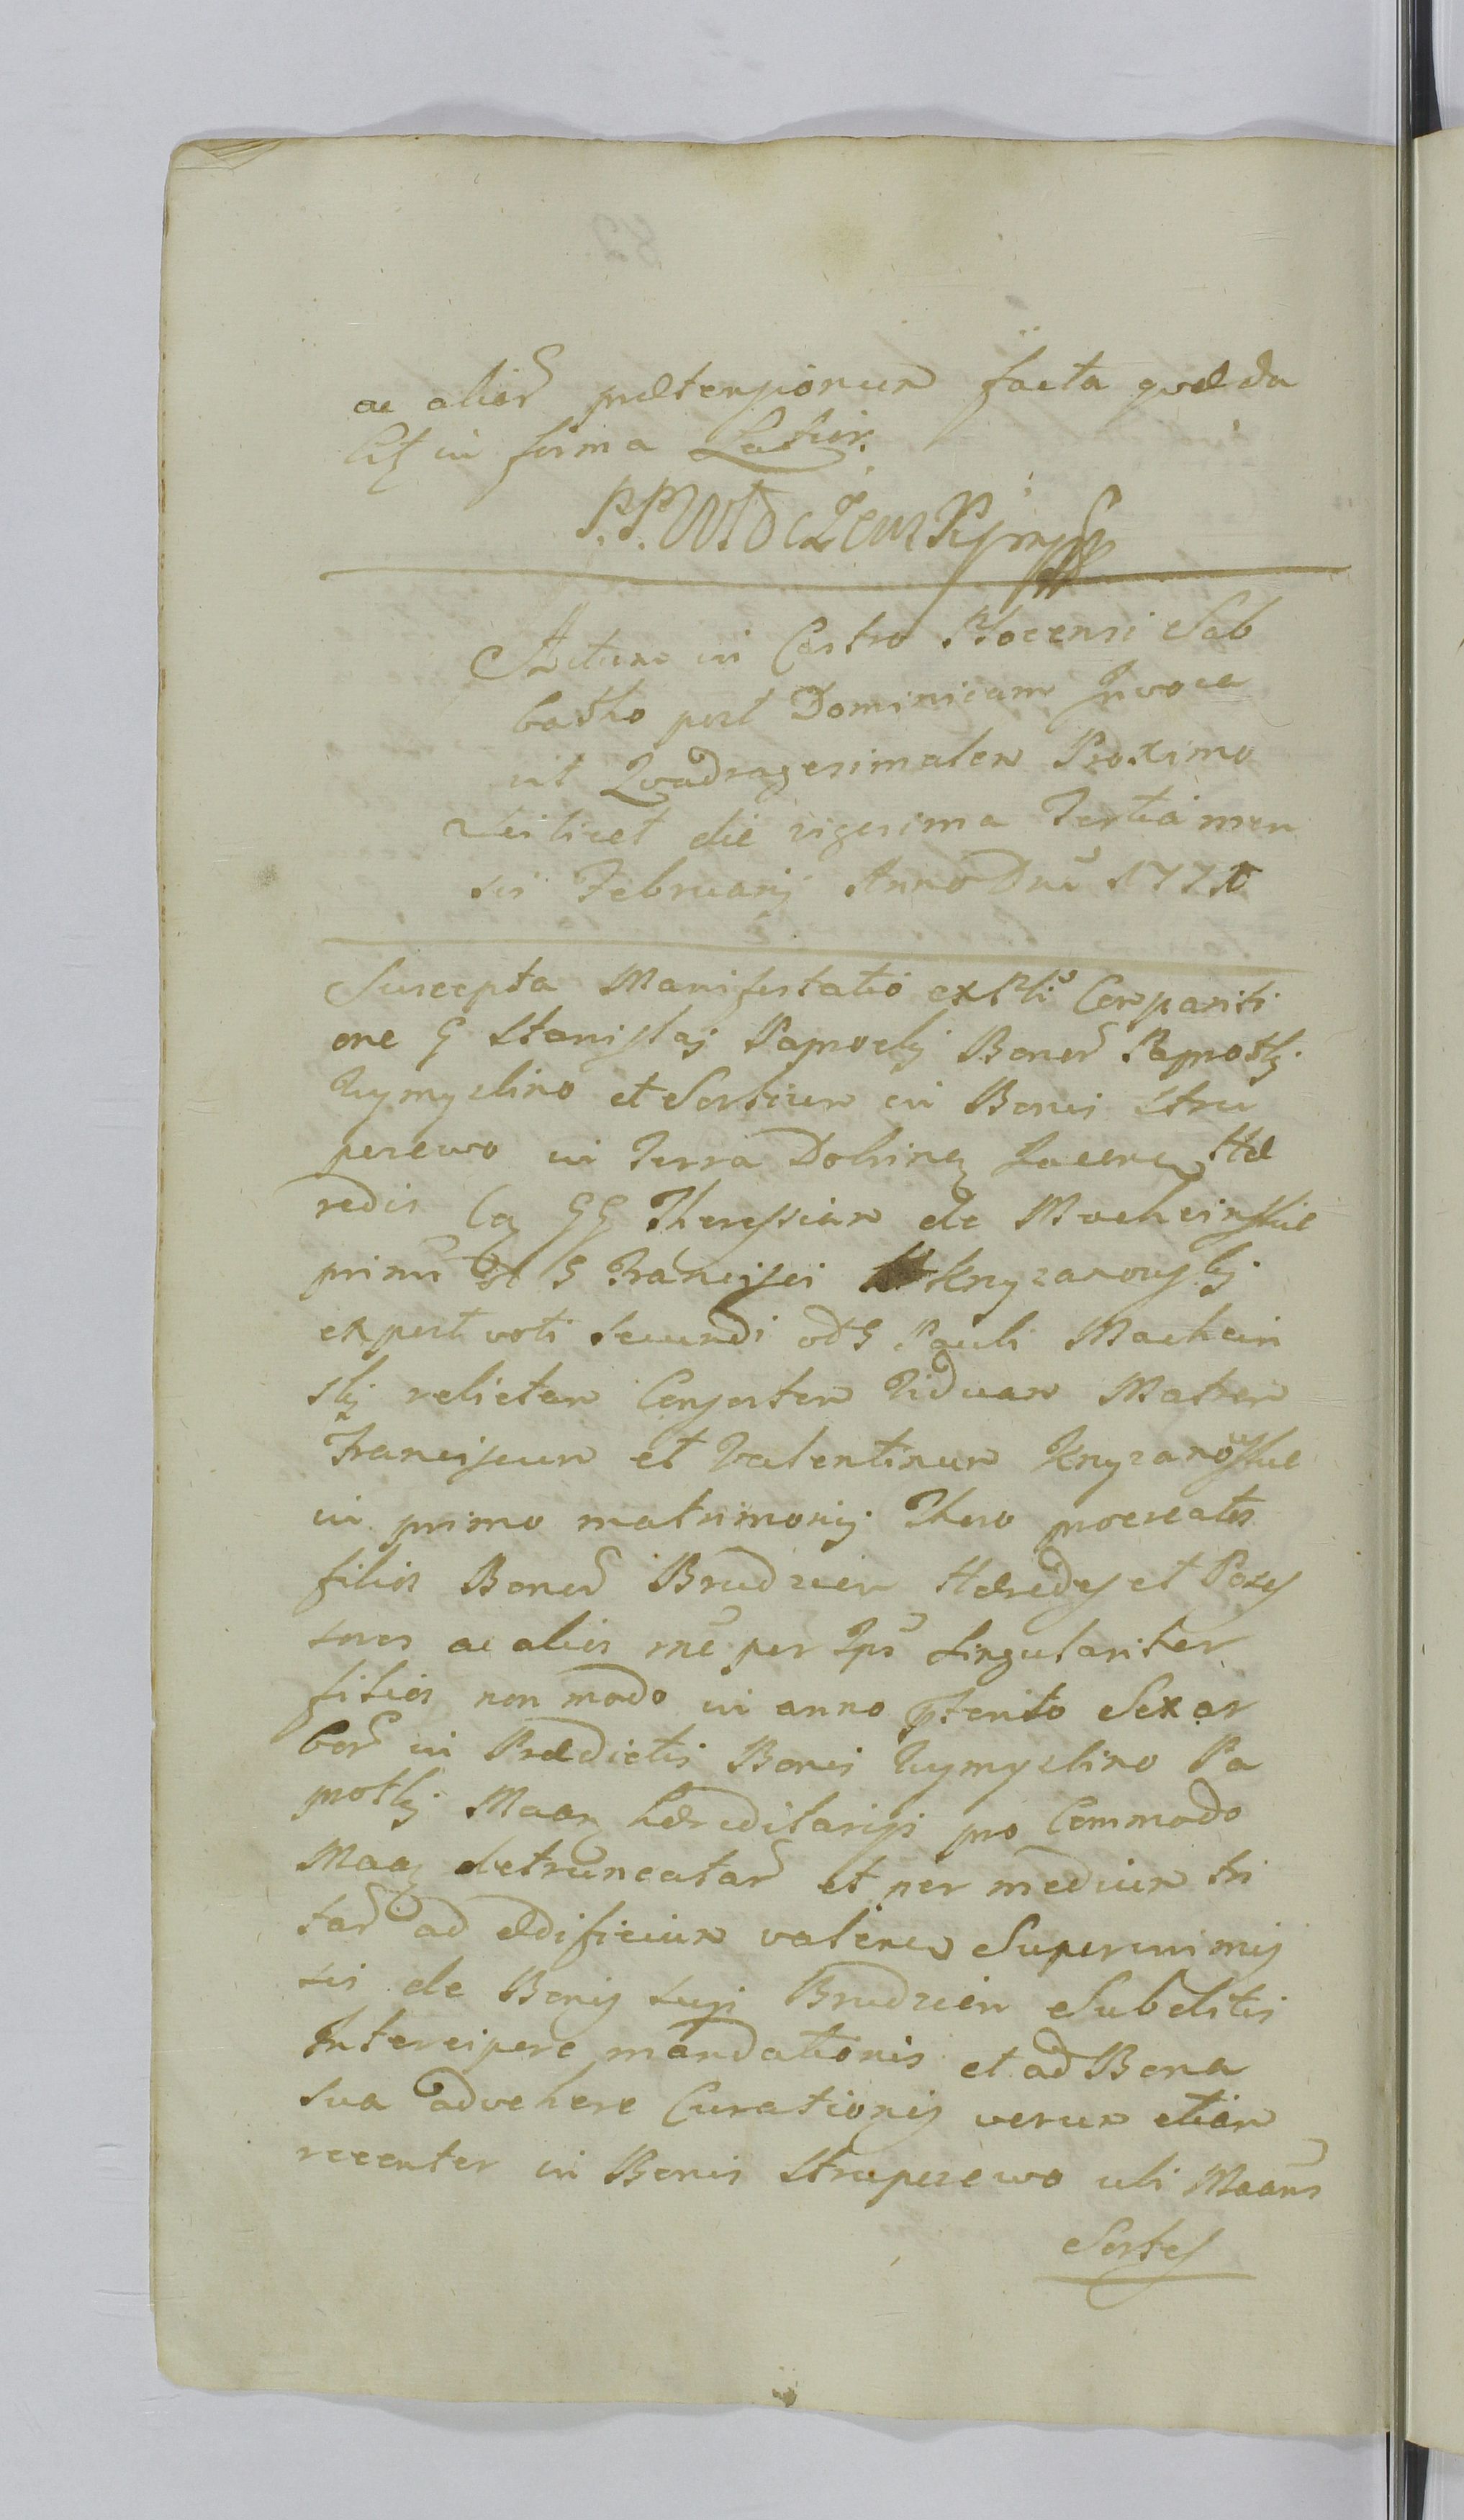 ac alior praetensionum facta quaedam
in forma Latior.
P. P.
Actum in Castro Plocensi Sab
batho post Dominicam Invoca
vit Quadragesimalem Proximo
Scilicet die vigesima Tertia men
sis Februarij Anno Dni 177
Suscepta Manifestatio ex Plti Compariti
one G Stanislaj Paprocky Bonor Paprotky
Rymyslino et Sortium in Bonis Stru
pczewo in Terra Dobrinen Jacen Hae
redis Ca GG Theressiam de Mocheinskie
primi G Francisci Knyzanowsky
ex post voti Secundi od G Pauli Machcin
sky relictam Consortem Viduam Matrem
Franciscum et Valentinum Knyzanowskie
in primo matrimonij Thoro procreatos
filios Bonor Brudzien Haeredes et Poses
sores ac alios ne per Ips Singulariter
filios non modo in anno Pterito Sex ar
bor in Praedictis Bonis Rymyslino Pa
protky Maan haereditarijs pro Commodo
Maan detruncatar et per medium tri
tar ad aedificium valen Superinmis
sis de Bonis suis Brudzien Subditis
Intercipere mandationis et ad Bona
sua advehere Curationis verum etiam
recenter in Bonis Strupczewo ubi Maans
Sortes